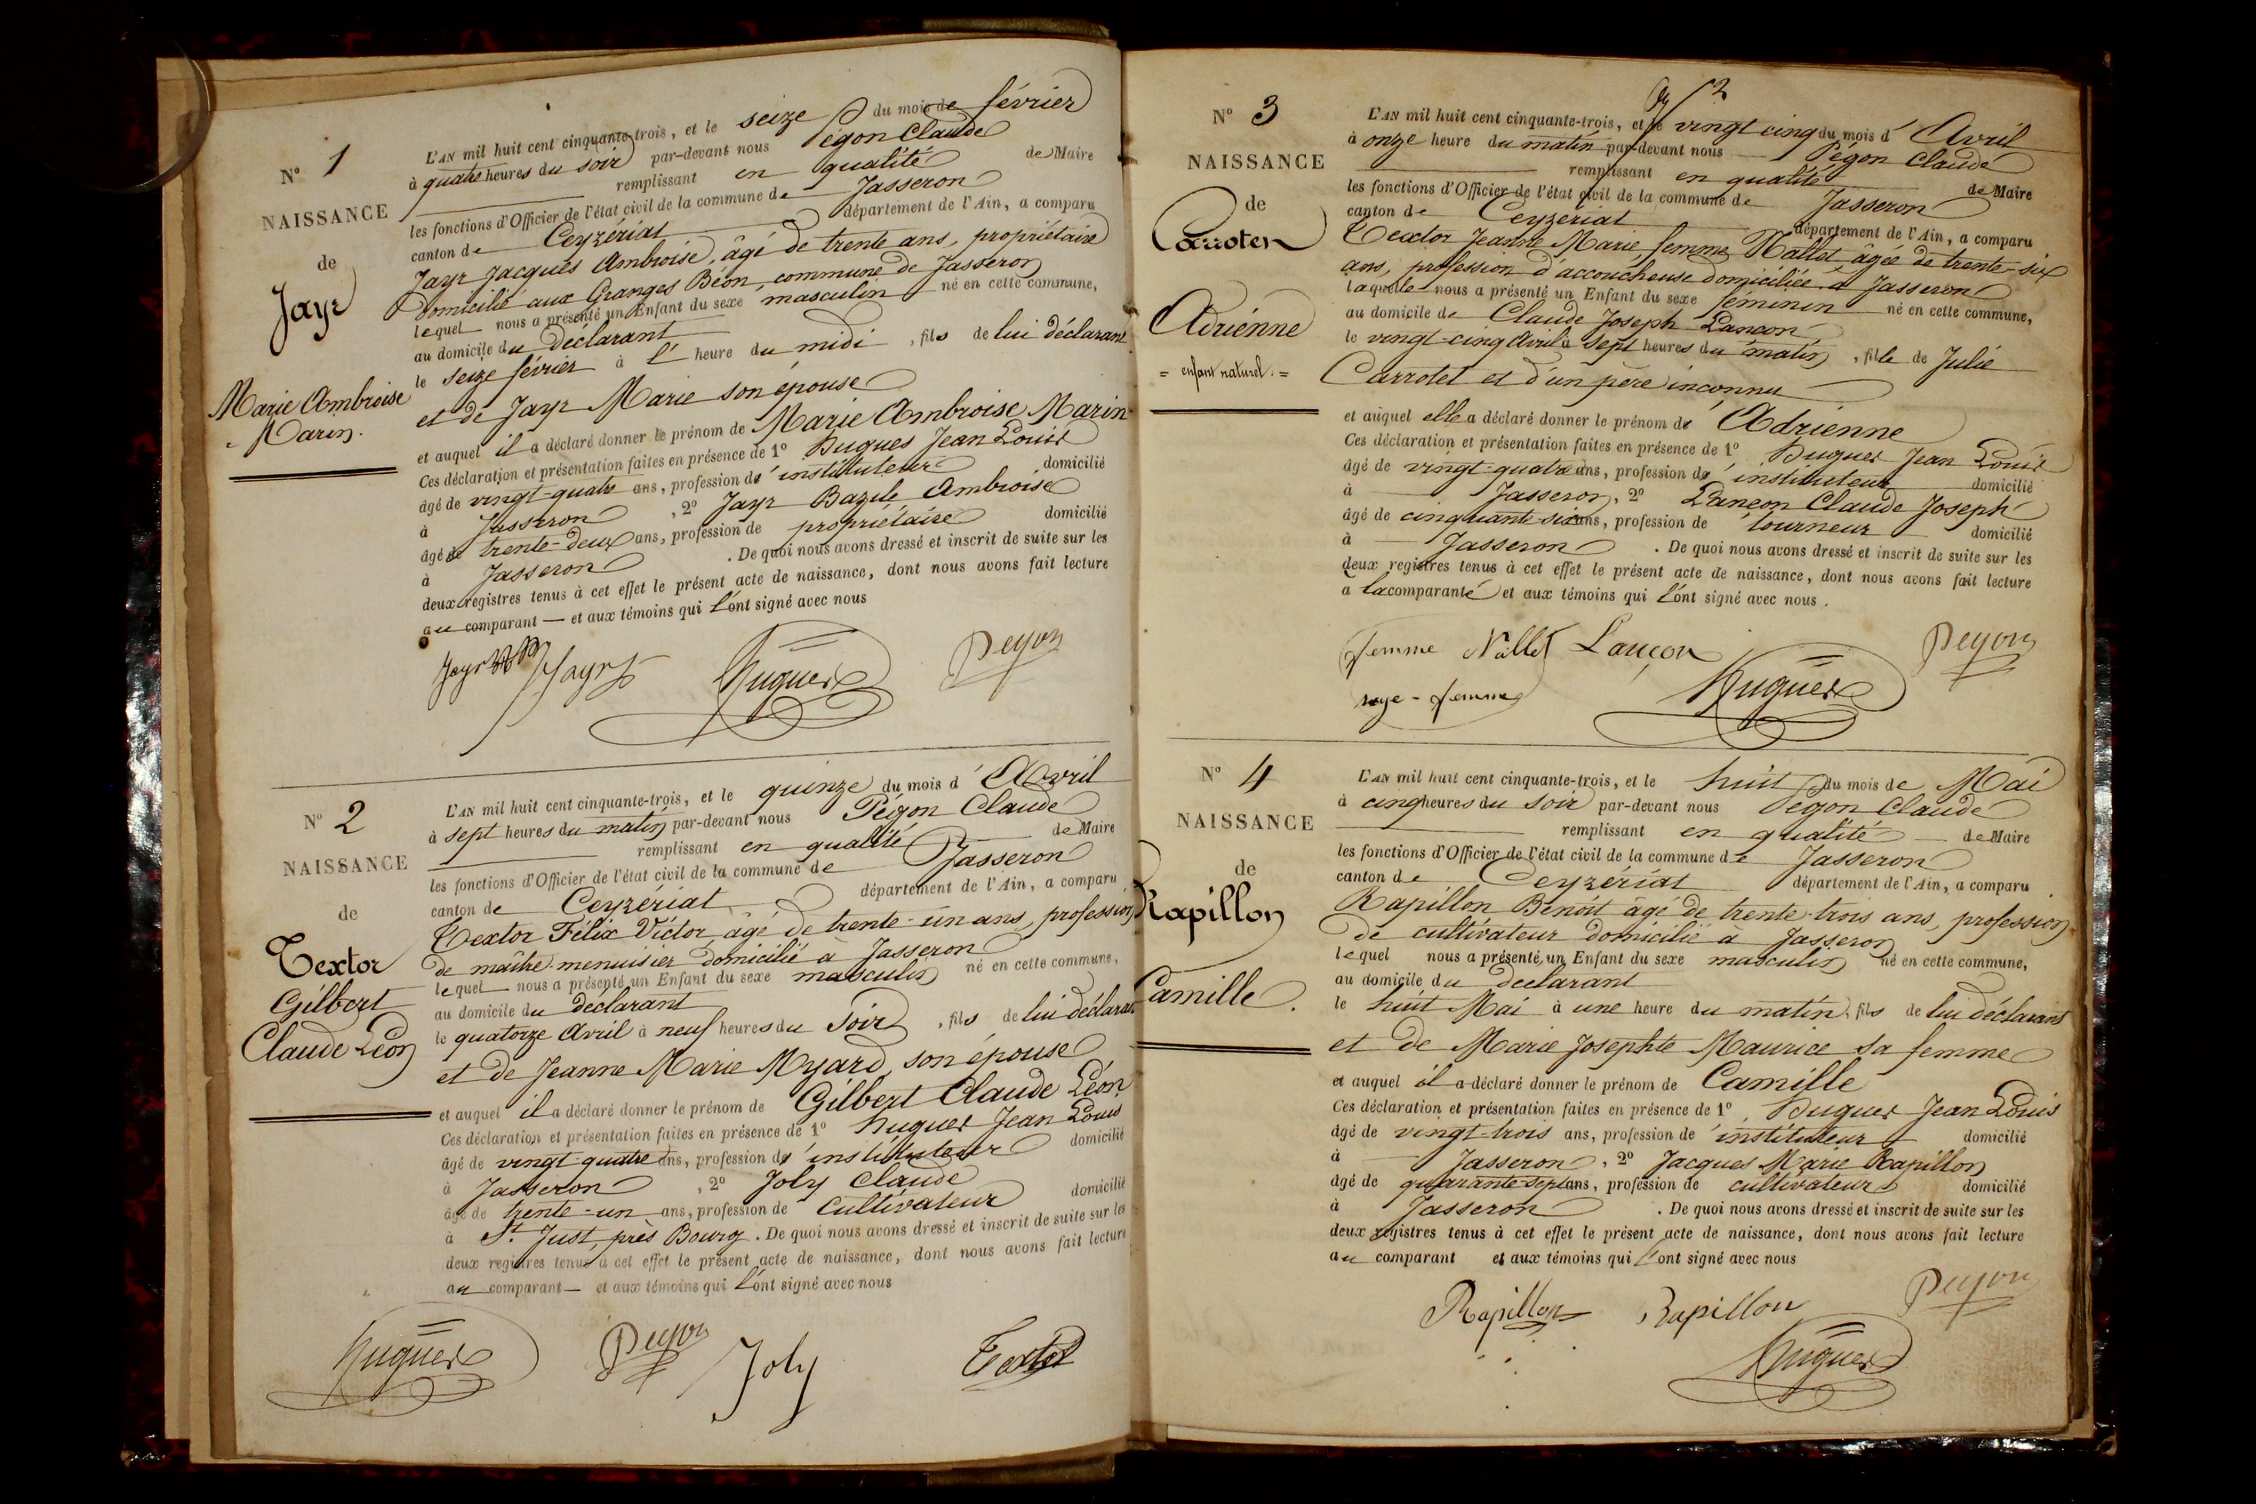 N° 1
NAISSANCE
de
Jayr
Marie Ambroise
Marin.
L'AN mil huit cent cinquante-trois, et le seize du mois de février
à quatre heures du soir par-devant nous Pégon Claude
remplissant en qualité de Maire
les fonctions d'Officier de l'état civil de la commune de Jasseron
canton de Ceyzériat département de l'Ain, a comparu
Jayr Jacques Ambroise, âgé de trente ans, propriétaire
Domicilié aux Granges Béon, commune de Jasseron
lequel nous a présenté un Enfant du sexe masculin né en cette commune,
au domicile du déclarant
le seize février à l' heure du midi, fils de lui déclarant
et de Jayr Marie son épouse
et auquel il a déclaré donner le prénom de Marie Ambroise Marin
Ces déclaration et présentation faites en présence de 1° Hugues Jean Louis
âgé de vingt-quatre ans, profession d'instituteur domicilié
à Jasseron, 2° Jayr Bazile Ambroise
âgé de trente-deux ans, profession de propriétaire domicilié
à Jasseron. De quoi nous avons dressé et inscrit de suite sur les
deux registres tenus à cet effet le présent acte de naissance, dont nous avons fait lecture
au comparant — et aux témoins qui l'ont signé avec nous
Jayr Jayr Hugues Pegon
N° 2
NAISSANCE
de
Textor
Gilbert
Claude Léon
L'AN mil huit cent cinquante-trois, et le quinze du mois d'Avril
à sept heures du matin par-devant nous Pégon Claude
remplissant en qualité de Maire
les fonctions d'Officier de l'état civil de la commune de Jasseron
canton de Ceyzériat département de l'Ain, a comparu
Textor Félix Victor, âgé de trente-un ans, profession
de maître menuisier domicilié à Jasseron
lequel nous a présenté un Enfant du sexe masculin né en cette commune,
au domicile du déclarant
le quatorze Avril à neuf heures du soir, fils de lui déclarant
et de Jeanne Marie Myard, son épouse
et auquel il a déclaré donner le prénom de Gilbert Claude Léon
Ces déclaration et présentation faites en présence de 1° Hugues Jean Louis
âgé de vingt-quatre ans, profession d'instituteur domicilié
à Jasseron, 2° Joly Claude
âgé de trente-un ans, profession de Cultivateur domicilié
à St. Just, près Bourg. De quoi nous avons dressé et inscrit de suite sur les
deux registres tenus à cet effet le présent acte de naissance, dont nous avons fait lecture
au comparant — et aux témoins qui l'ont signé avec nous
Hugues Pegon Joly Textor
2
N° 3
NAISSANCE
de
Carroten
Adrienne
= enfant naturel. =
L'AN mil huit cent cinquante-trois, et le vingt cinq du mois d'Avril
à onze heure du matin par-devant nous Pégon Claude
remplissant en qualité de Maire
les fonctions d'Officier de l'état civil de la commune de Jasseron
canton de Ceyzériat département de l'Ain, a comparu
Textor Jeanne Marie femme Nallet âgée de trente-six
ans, profession d'accoucheuse domiciliée à Jasseron
laquelle nous a présenté un Enfant du sexe féminin né en cette commune,
au domicile de Claude Joseph Lançon
le vingt-cinq Avril à sept heures du matin, fille de Julie
Carrotet et d'un père inconnu
et auquel elle a déclaré donner le prénom d'Adrienne
Ces déclaration et présentation faites en présence de 1° Hugues Jean Louis
âgé de vingt-quatre ans, profession d'instituteur domicilié
à Jasseron, 2° Lançon Claude Joseph
âgé de cinquante-six ans, profession de tourneur domicilié
à Jasseron. De quoi nous avons dressé et inscrit de suite sur les
deux registres tenus à cet effet le présent acte de naissance, dont nous avons fait lecture
a la comparante et aux témoins qui l'ont signé avec nous.
femme Nallet Lançon Pegon
sage-femme Hugues
N° 4
NAISSANCE
de
Rapillon
Camille.
L'AN mil huit cent cinquante-trois, et le huit du mois de Mai
à cinq heures du soir par-devant nous Pégon Claude
remplissant en qualité de Maire
les fonctions d'Officier de l'état civil de la commune de Jasseron
canton de Ceyzériat département de l'Ain, a comparu
Rapillon Benoit âgé de trente-trois ans, profession
de cultivateur domicilié à Jasseron
lequel nous a présenté un Enfant du sexe masculin né en cette commune,
au domicile du declarant
le huit Mai à une heure du matin, fils de lui déclarant
et de Marie Josephte Maurice sa femme
et auquel il a déclaré donner le prénom de Camille
Ces déclaration et présentation faites en présence de 1° Hugues Jean Louis
âgé de vingt-trois ans, profession de instituteur domicilié
à Jasseron, 2° Jacques Marie Rapillon
âgé de quarante-sept ans, profession de cultivateur domicilié
à Jasseron. De quoi nous avons dressé et inscrit de suite sur les
deux registres tenus à cet effet le présent acte de naissance, dont nous avons fait lecture
au comparant et aux témoins qui l'ont signé avec nous
Rapillon Rapillon Pegon
Hugues